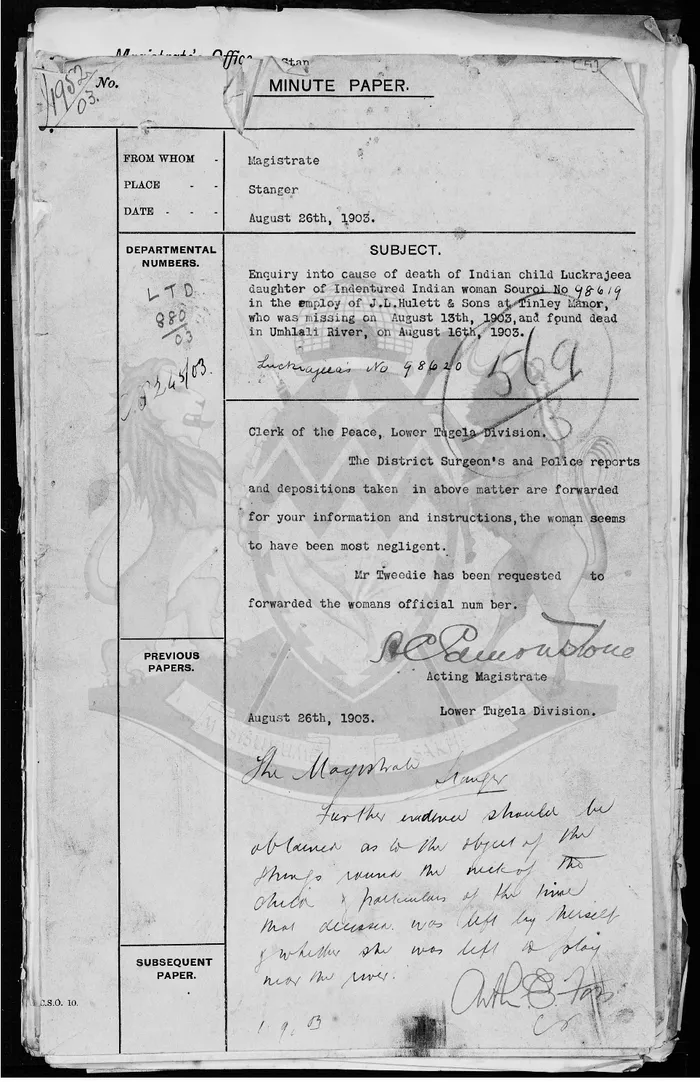 Magistrate's Office Stan
1952
03.
No.
MINUTE PAPER.
FROM WHOM - Magistrate
PLACE - - Stanger
DATE - - - August 26th, 1903.
DEPARTMENTAL
NUMBERS.
LTD
880
03
245/03.
SUBJECT.
Enquiry into cause of death of Indian child Luckrajeea
daughter of Indentured Indian woman Souroi No 98619
in the employ of J.L.Hulett & Sons at Tinley Manor,
who was missing on August 13th, 1903,and found dead
in Umhlali River, on August 16th, 1903.
Luckrajeea's No 98620
569
Clerk of the Peace, Lower Tugela Division.
The District Surgeon's and Police reports
and depositions taken in above matter are forwarded
for your information and instructions,the woman seems
to have been most negligent.
Mr Tweedie has been requested to
forwarded the womans official num ber.
Acting Magistrate
Lower Tugela Division.
August 26th, 1903.
PREVIOUS
PAPERS.
The Magistrate
Stanger
Further evidence should be
obtained as to the object of the
strings round the neck of the
child & particulars of the time
that deceased was left by herself
& whether she was left to play
near the river.
1 9 03
SUBSEQUENT
PAPER.
C.S.O. 10.